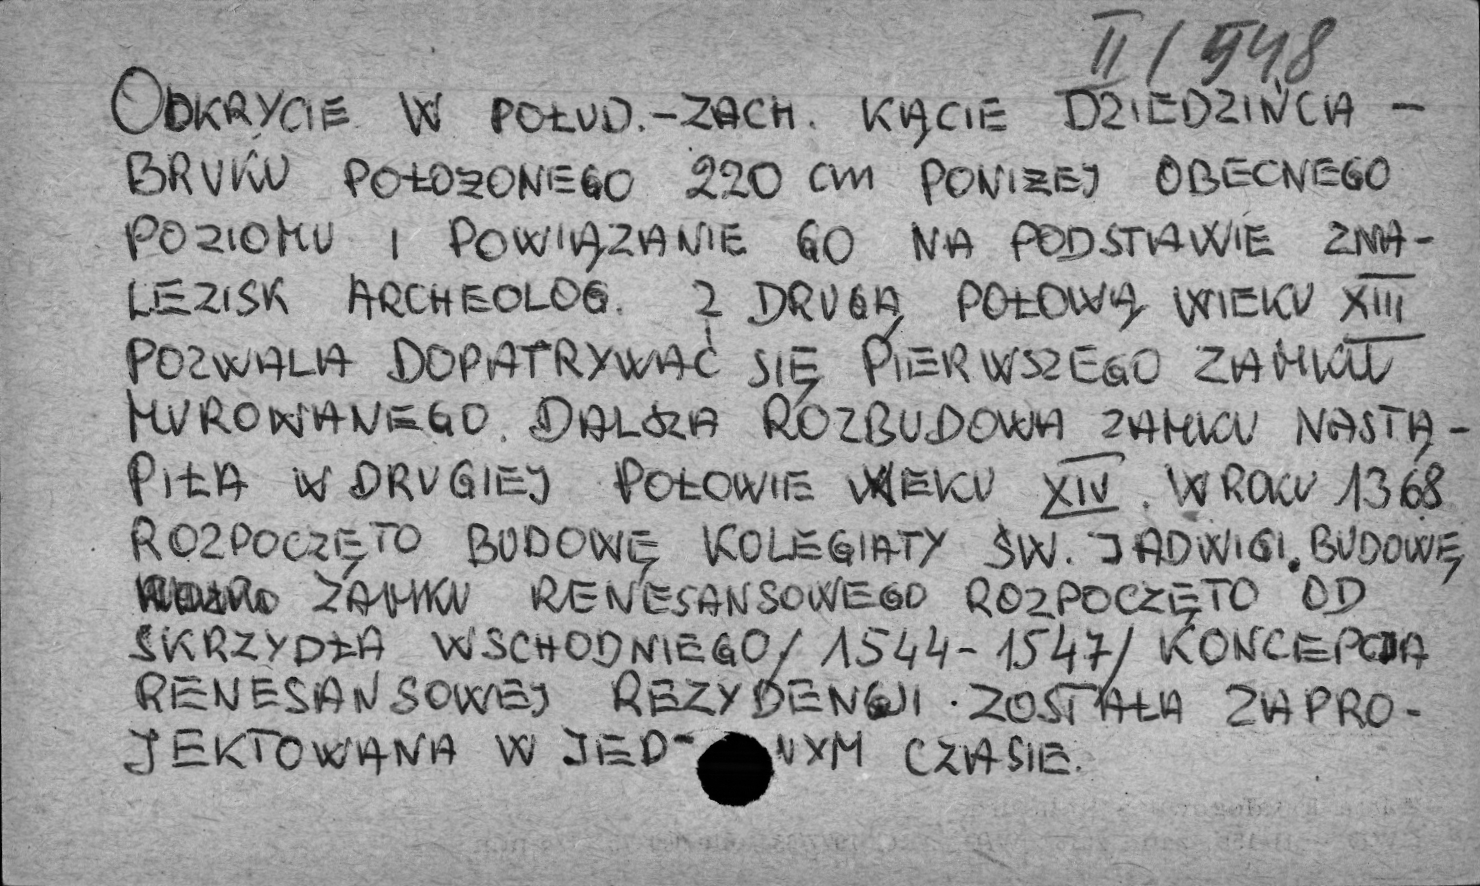 II/548
ODKRYCIE W POŁUD.-ZACH. KĄCIE DZIEDZIŃCA -
BRUKU POŁOŻONEGO 220 cm PONIŻEJ OBECNEGO
POZIOMU I POWIĄZANIE GO NA PODSTAWIE ZNA-
LEZISK ARCHEOLOG. Z DRUGĄ POŁOWĄ WIEKU XIII
POZWALA DOPATRYWAĆ SIĘ PIERWSZEGO ZAMKU
MUROWANEGO. DALSZA ROZBUDOWA ZAMKU NASTĄ-
PIŁA W DRUGIEJ POŁOWIE WIEKU XIV. W ROKU 1368
ROZPOCZĘTO BUDOWĘ KOLEGIATY ŚW. JADWIGI. BUDOWĘ
ZAMKU RENESANSOWEGO ROZPOCZĘTO OD
SKRZYDŁA WSCHODNIEGO/1544-1547/ KONCEPCJA
RENESANSOWEJ REZYDENCJI ZOSTAŁA ZAPRO-
JEKTOWANA W JED- NYM CZASIE.